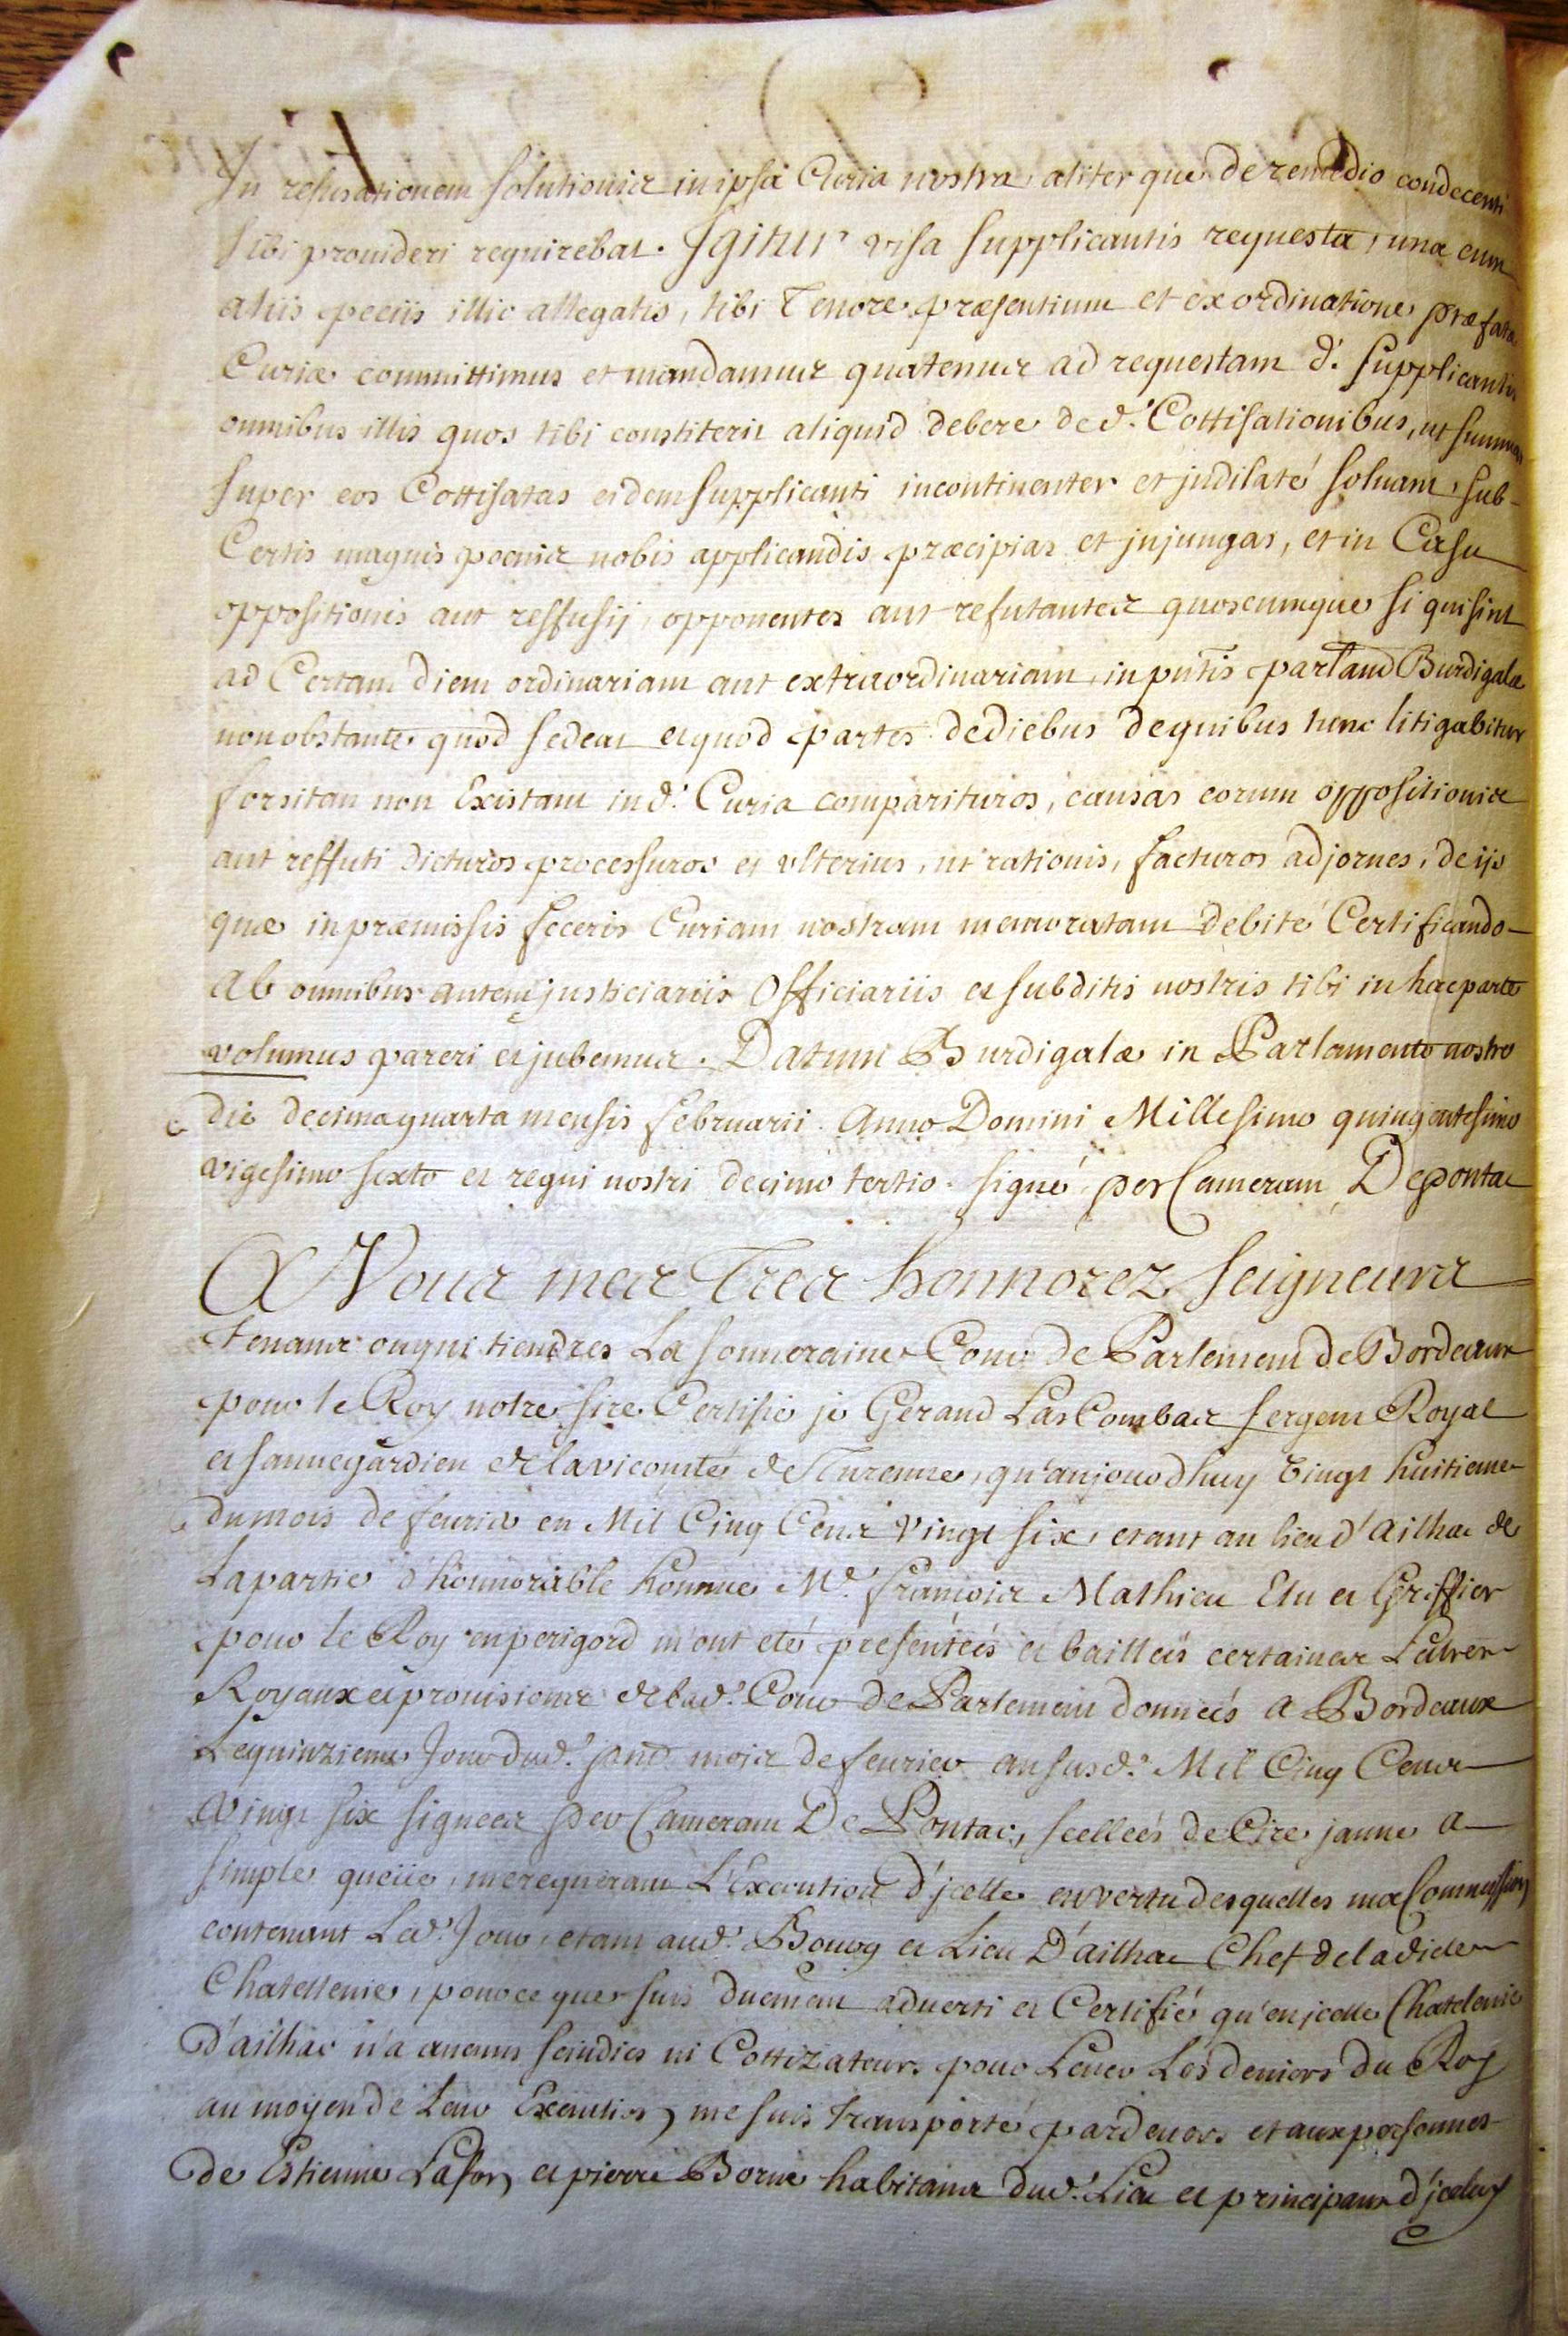 In refusationem solutionis in ipsa Curia nostra, aliter que de remedio condecenti
sibi provideri requirebat. Igitur visa supplicantis requesta, una cum
aliis peciis illic allegatis, tibi Tenore præsentium et ex ordinatione præfatæ
Curiæ committimus et mandamus quatenus ad requestam d.' supplicantis
omnibus illis quos tibi constiterit aliquid debere de d.' Cottisationibus, ut summas
super eos Cottisatas eidem supplicanti incontinenter et jndilaté soluant, sub-
Certis magnis poenis nobis applicandis præcipias et jnjungas, et in Casu
oppositionis aut reffusij, opponentes aut refutantes quoscumque si qui sint
ad Certam diem ordinariam aut extraordinariam, in pntis parlam̃ Burdigalæ
non obstante quod sedeat et quod partes de diebus de quibus tunc litigabitur
forsitan non Existant in d.' Curia comparituros, causas eorum oppositionis
aut reffuti dicturos processuros et ulterius, ut rationis, facturos adjornes, de ijs
quæ in præmissis feceris Curiam nostram memoratam debité Certificando-
Ab omnibus autem justiciariis Officiariis et subditis nostris tibi in hac parte
volumus pareri et jubemus. Datum Burdigalæ in Parlamento nostro
die decima quarta mensis februarii. Anno Domini Millesimo quingentesimo
vigesimo sexto et regni nostri decimo tertio. signé per Cameram Depontac
A Vous mes Tres honnorez seigneurs
tenans ou qui tiendres La souueraine Cour de Parlement de Bordeaux
pour le Roy notre sire. Certifie je Geraud Las Combas sergent Royal
et sauuegardien de la vicomté de Turenne, qu'aujourdhuy Vingt huitieme
du mois de feurier en Mil Cinq Cens Vingt six, etant au lieu d'ailhac de
La partie d'honnorable homme Me. francois Mathieu Elu et Greffier
pour le Roy en perigord m'ont eté presentées et baillées certaines Lettres
Royaux et prouisions de lad.' Cour de Parlement données a Bordeaux
Le quinzieme Jour dud.' mois de feurier an susd.' Mil Cinq Cens
Vingt six signees Per Cameram De Pontac, scellées de Cire jaune a
simple queüe, me requerant L'Execution d'jcelle en vertu desquelles ma Commission
contenant Led.' Jour, etant aud.' Bourg et Lieu D'ailhac Chef de ladite
Chatellenie, pour ce que suis duement aduerti et Certifié qu'en jcelle Chatelenie
d'ailhac n'a aucuns scindics ni Cottizateurs pour Leuer Les deniers du Roy
au moyen de Leur Execution, me suis transporté par deuers et aux personnes
de Estienne Lafon, et pierre Borne habitans dud.' Lieu et principaux d'jceluy